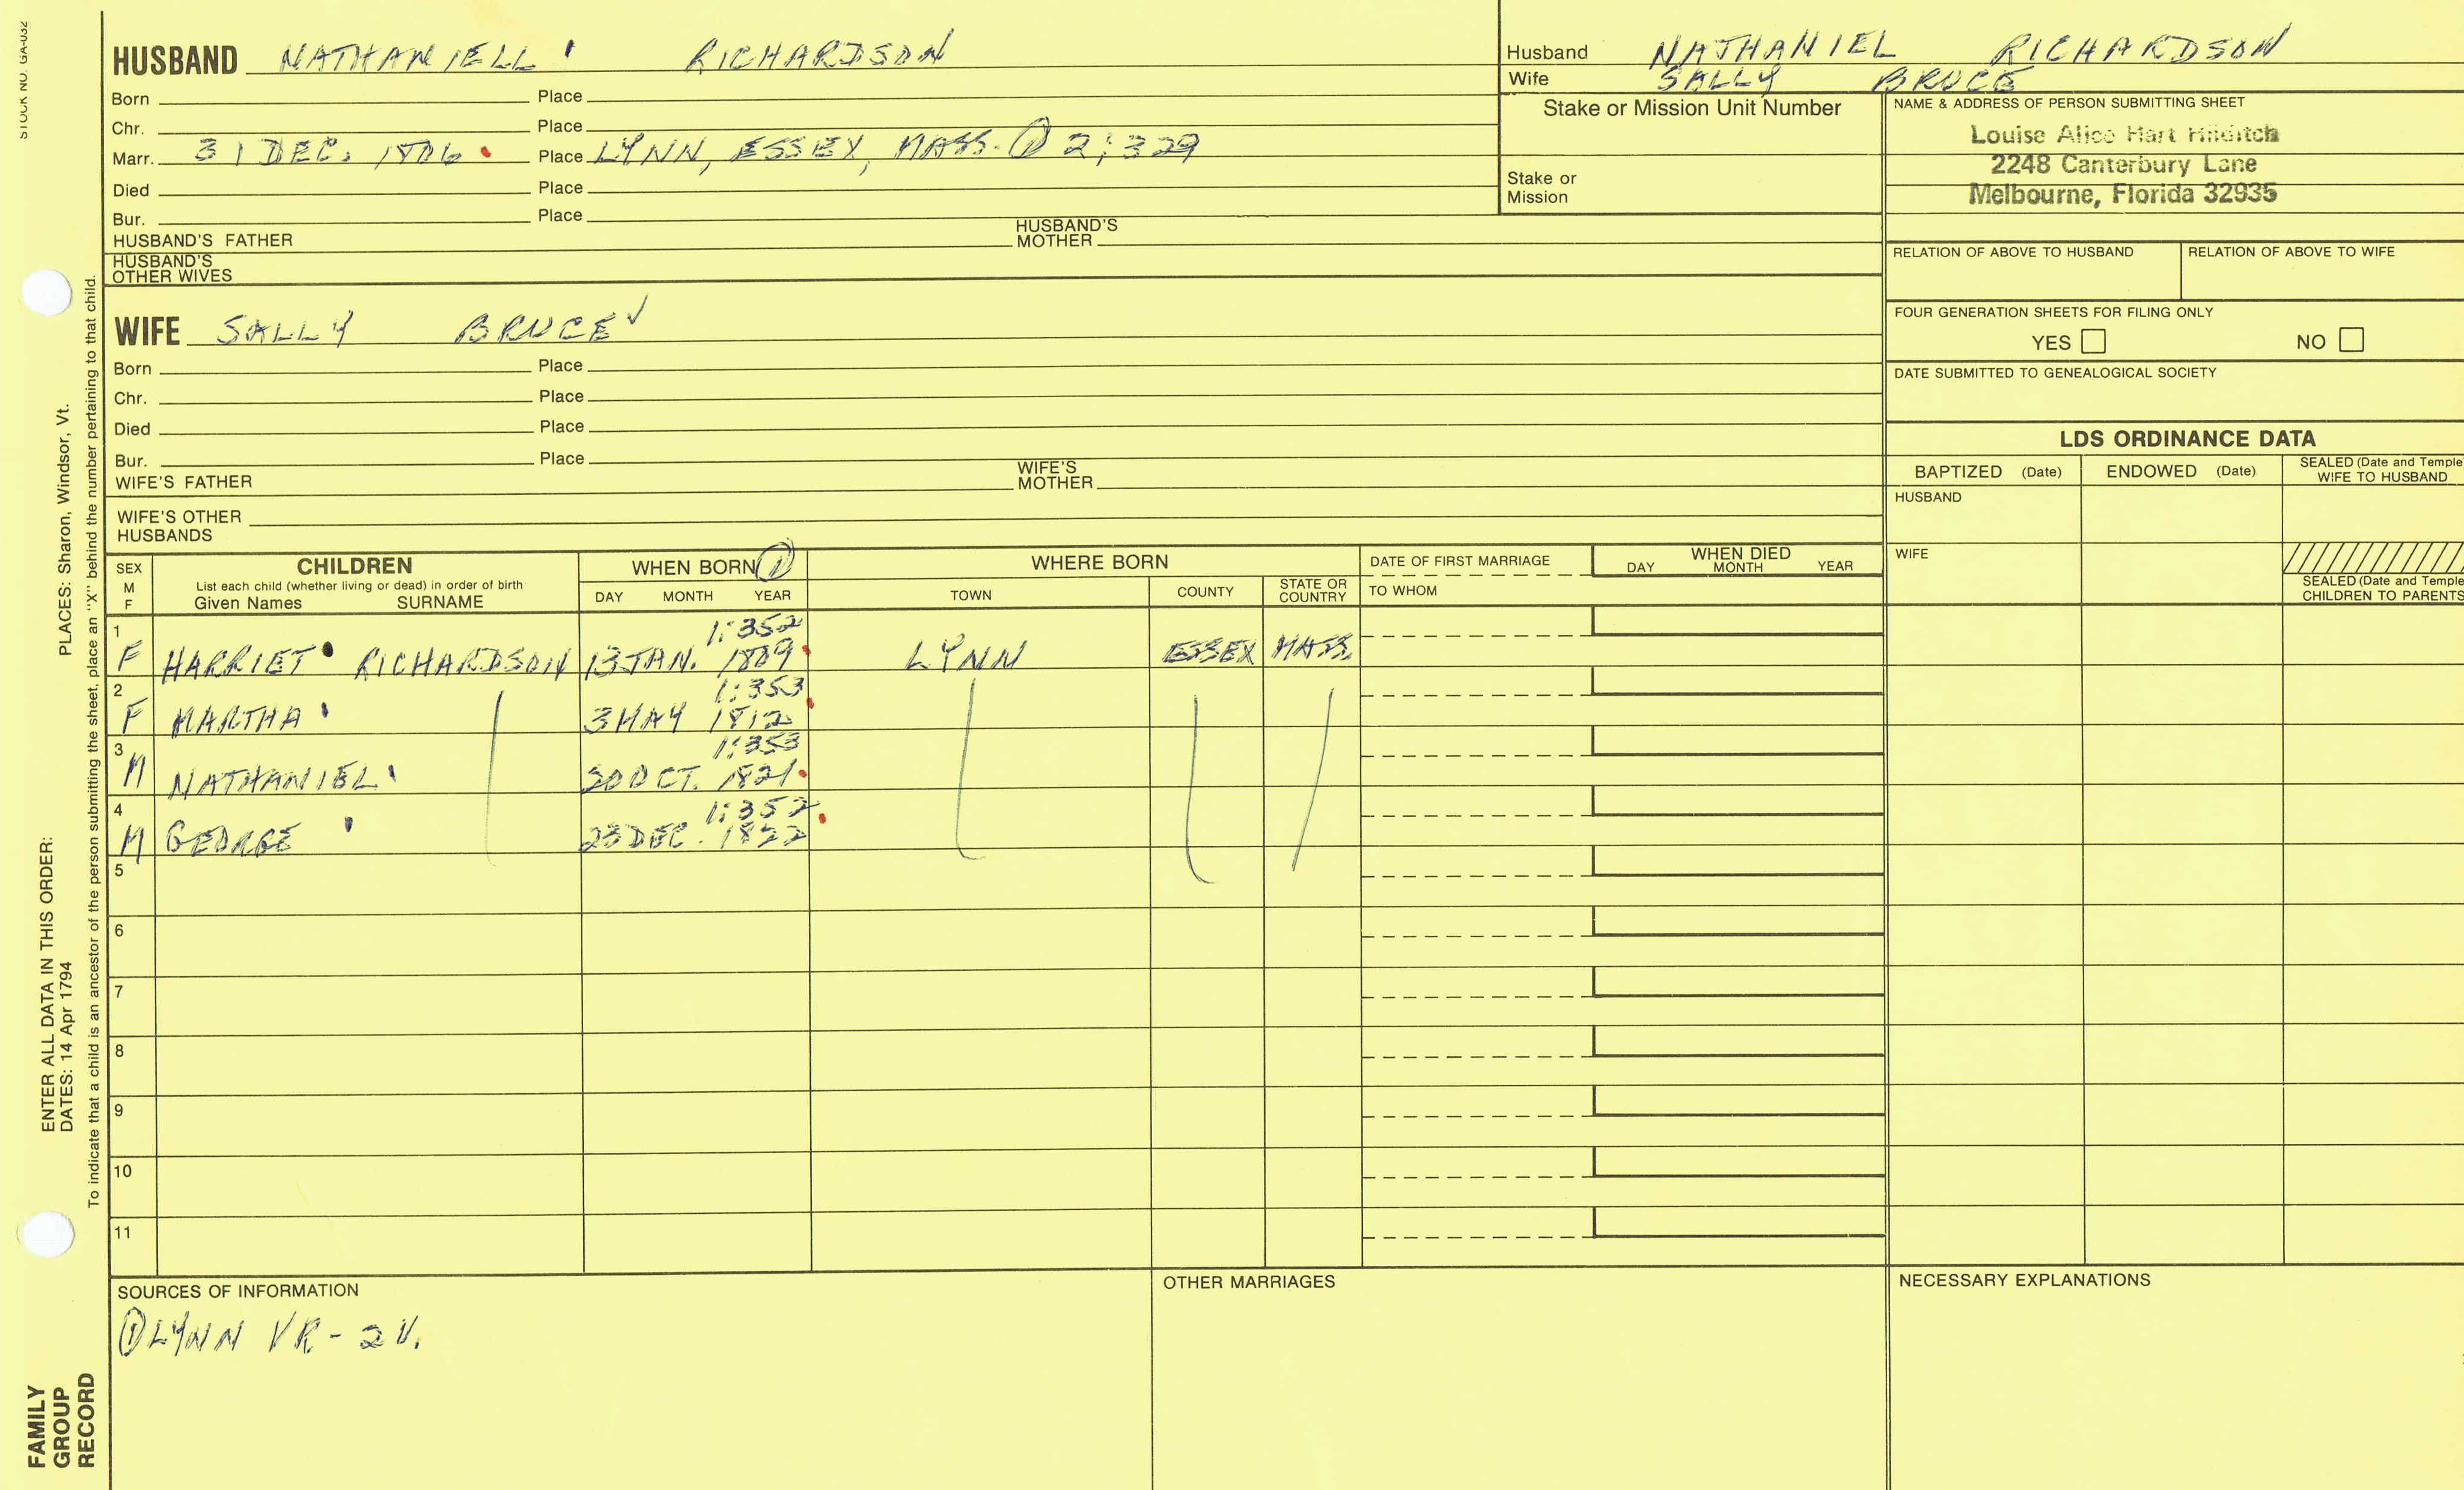 STOCK NO. GA-032
HUSBAND NATHANIELL RICHARDSON
Born Place
Chr. Place
Marr. 31 DEC. 1806 Place LYNN, ESSEX, MASS. ① 2:329
Died Place
Bur. Place
HUSBAND'S FATHER HUSBAND'S MOTHER
HUSBAND'S OTHER WIVES
WIFE SALLY BRUCE ✓
Born Place
Chr. Place
Died Place
Bur. Place
WIFE'S FATHER WIFE'S MOTHER
WIFE'S OTHER HUSBANDS
Husband NATHANIEL RICHARDSON
Wife SALLY BRUCE
Stake or Mission Unit Number
Stake or Mission
NAME & ADDRESS OF PERSON SUBMITTING SHEET
Louise Alice Hart Hilditch
2248 Canterbury Lane
Melbourne, Florida 32935
RELATION OF ABOVE TO HUSBAND RELATION OF ABOVE TO WIFE
FOUR GENERATION SHEETS FOR FILING ONLY
YES NO
DATE SUBMITTED TO GENEALOGICAL SOCIETY
LDS ORDINANCE DATA
BAPTIZED (Date) ENDOWED (Date) SEALED (Date and Temple) WIFE TO HUSBAND
HUSBAND
WIFE
SEALED (Date and Temple) CHILDREN TO PARENTS
SEX M F
CHILDREN
List each child (whether living or dead) in order of birth
Given Names SURNAME
WHEN BORN ①
DAY MONTH YEAR
WHERE BORN
TOWN COUNTY STATE OR COUNTRY
DATE OF FIRST MARRIAGE
TO WHOM
WHEN DIED
DAY MONTH YEAR
1 1:352
F HARRIET RICHARDSON 13 JAN. 1809 LYNN ESSEX MASS.
2 1:353
F MARTHA 3 MAY 1812
3 1:353
M NATHANIEL OCT. 1821
4 1:352
M GEORGE 23 DEC. 1822
5
6
7
8
9
10
11
SOURCES OF INFORMATION
① LYNN VR - 2 V.
OTHER MARRIAGES
NECESSARY EXPLANATIONS
ENTER ALL DATA IN THIS ORDER:
DATES: 14 Apr 1794 PLACES: Sharon, Windsor, Vt.
To indicate that a child is an ancestor of the person submitting the sheet, place an "X" behind the number pertaining to that child.
FAMILY
GROUP
RECORD